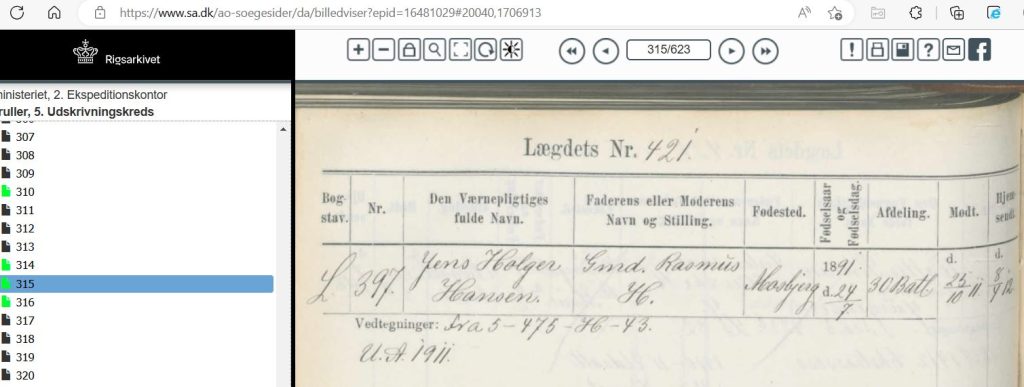 https://www.sa.dk/ao-soegesider/da/billedviser?epid=16481029#20040,1706913
Rigsarkivet
315/623
ministeriet, 2. Ekspeditionskontor
ruller, 5. Udskrivningskreds
306
307
308
309
310
311
312
313
314
315
316
317
318
319
320
Lægdets Nr. 421.
Bog-
stav.
Nr.
Den Værnepligtiges
fulde Navn.
Faderens eller Moderens
Navn og Stilling.
Fødested.
Fødselsaar
og
Fødselsdag.
Afdeling.
Mødt.
Hjem-
sendt.
L 397.
Jens Holger
Hansen.
Gmd. Rasmus
H.
Mosbjerg
1891.
d. 24/7
30 Batl
d.
25/10 11.
d.
8/9 12
Vedtegninger: fra 5-475-H-43.
U.A. 1911.